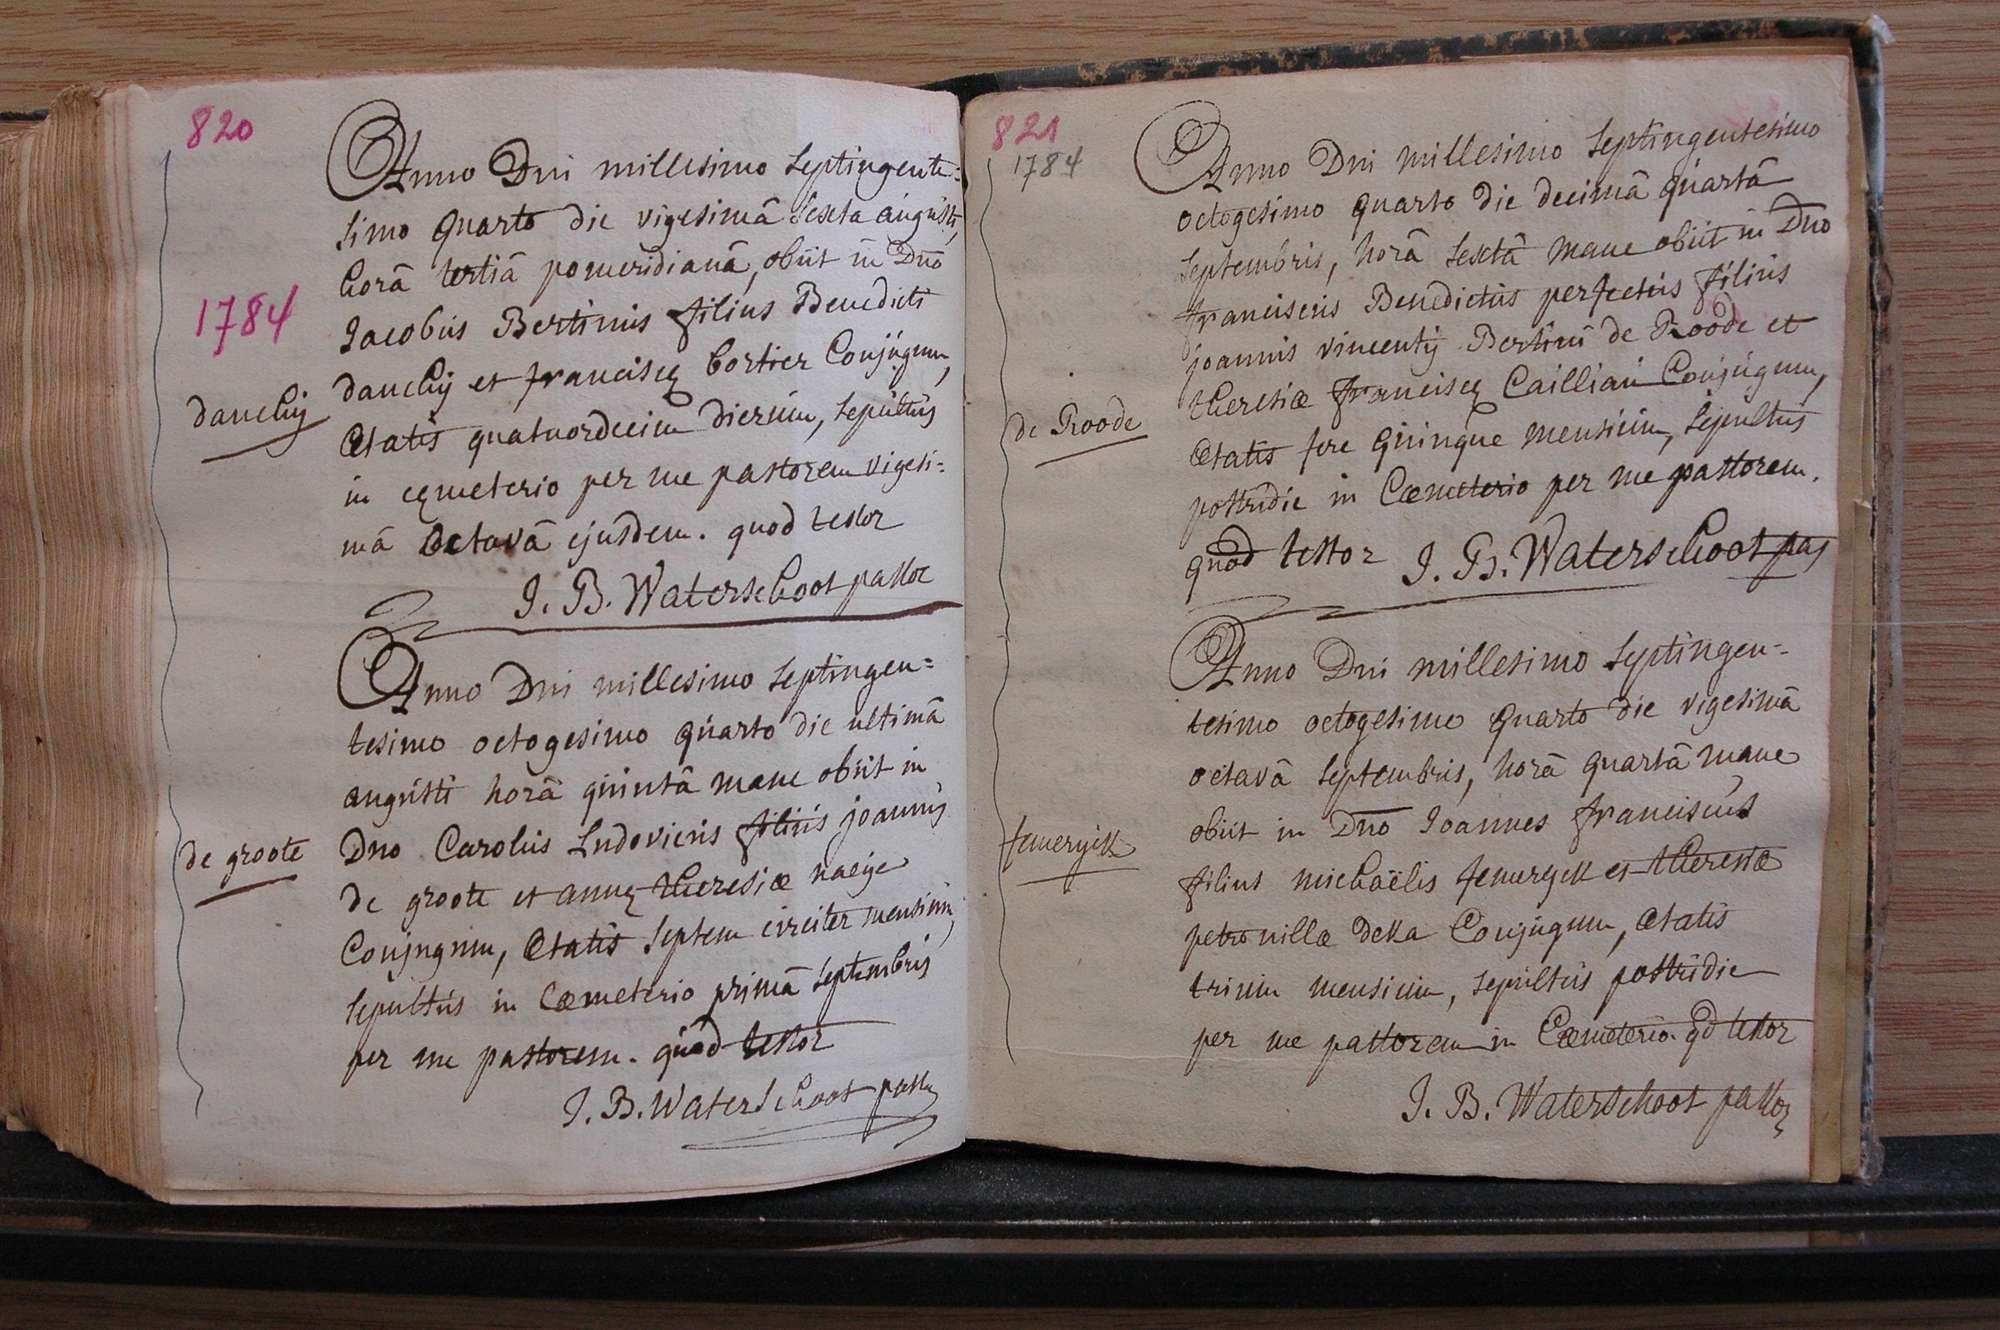 820
Anno Dni millesimo septingente=
simo quarto die vigesimâ sexta augusti,
horâ tertiâ pomeridianâ, obiit in Dno
1784
Jacobus Bertinus filius Benedicti
danchij et franciscę Cortier Conjugum,
danchij
ætatis quatuordecim dierum, sepultus
in cęmeterio per me pastorem vigesi=
mâ octavâ ejusdem. quod testor
J. B. Waterschoot pastor
Anno Dni millesimo septingen=
tesimo octogesimo quarto die ultimâ
augusti horâ quintâ mane obiit in
de groote
Dno Carolus Ludovicus filius joannis
de groote et annę theresiæ naeije
Conjugum, ætatis septem circiter mensium,
sepultus in Cæmeterio primâ septembris
per me pastorem. quod testor
J. B. Waterschoot past
821
1784
Anno Dni millesimo septingentesimo
octogesimo quarto die decimâ quartâ
septembris, horâ sextâ mane obiit in Dno
franciscus Benedictus perfectus filius
joannis vincentij Bertini de Roode et
theresiæ franciscę Cailliau Conjugum,
de Roode
ætatis fere quinque mensium, sepultus
postridie in Cæmeterio per me pastorem.
quod testor J. B. Waterschoot pas
Anno Dni millesimo septingen=
tesimo octogesimo quarto die vigesimâ
octavâ septembris, horâ quartâ mane
obiit in Dno Joannes franciscus
femeryck
filius michaëlis femeryck et theresiæ
petronillæ deka Conjugum, ætatis
trium mensium, sepultus postridie
per me pastorem in Cæmeterio. qd testor
J. B. Waterschoot pastor